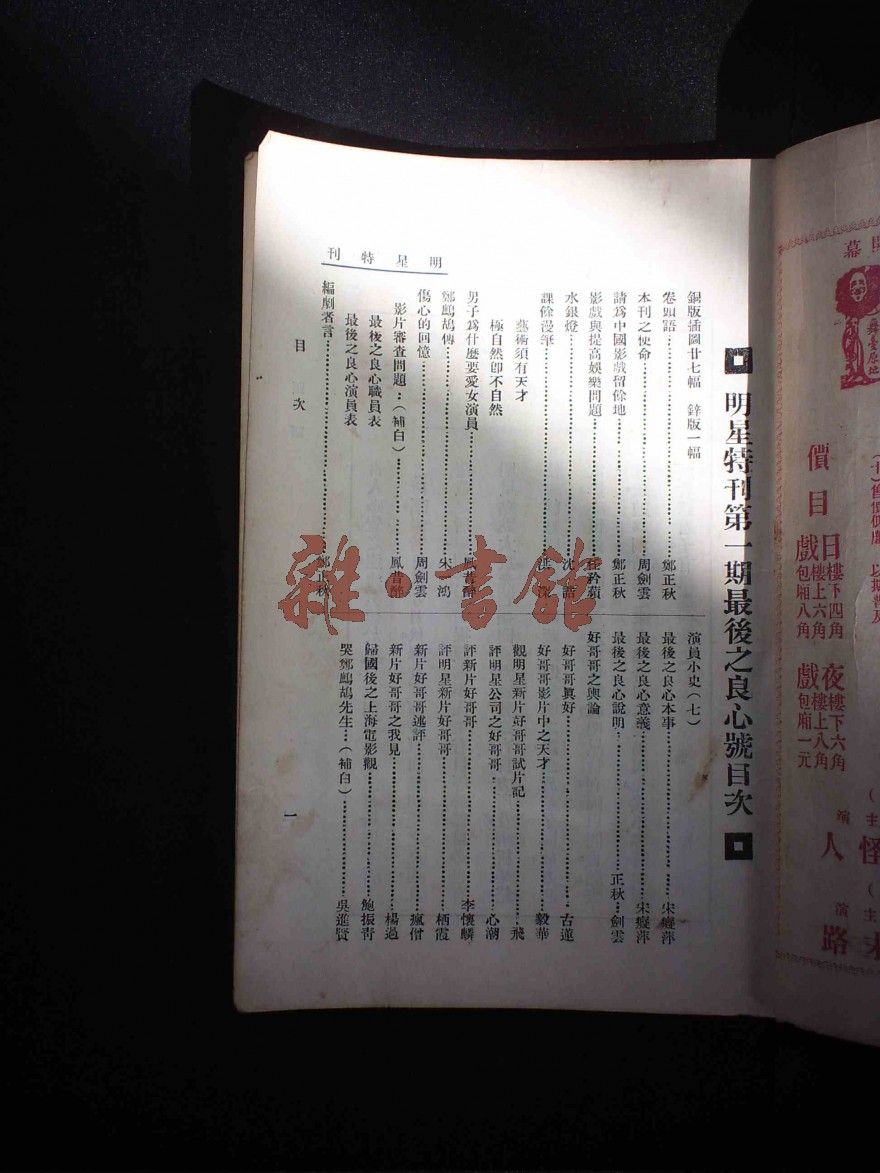 明星特刊第一期最後之良心號目次
銅版插圖廿七幅 鋅版一幅
卷頭語……鄭正秋
本刊之使命……周劍雲
請為中國影戲留餘地……鄭正秋
影戲與提高娛樂問題……任矜蘋
水銀燈……沈誥
課餘漫筆……洪深
藝術須有天才
極自然卽不自然
男子為什麼要愛女演員……鳳昔醉
鄭鷓鴣傳……宋鴻
傷心的回憶……周劍雲
影片審查問題……(補白)……鳳昔醉
最後之良心職員表
最後之良心演員表
編劇者言……鄭正秋
演員小史(七)
最後之良心本事……宋癡萍
最後之良心意義……宋癡萍
最後之良心說明……正秋……劍雲
好哥哥之輿論
好哥哥眞好……古蓮
好哥哥影片中之天才……毅華
觀明星新片好哥哥試片記……飛
評明星公司之好哥哥……心潮
評新片好哥哥……李懷麟
評明星新片好哥哥……栖霞
新片好哥哥述評……瘋僧
新片好哥哥之我見……楊過
歸國後之上海電影觀……鮑振青
哭鄭鷓鴣先生……(補白)……吳進賢
明星特刊
目次
一
價目
日戲
樓下四角
樓上六角
包廂八角
夜戲
樓下六角
樓上八角
包廂一元
雜·書館